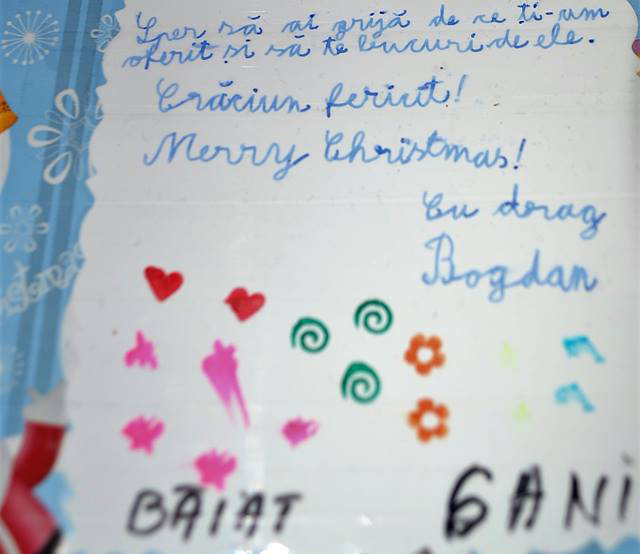 Sper să ai grijă de ce ți-am
oferit și să te bucuri de ele.
Crăciun fericit!
Merry Christmas!
Cu drag
Bogdan
BĂIAT 6 ANI